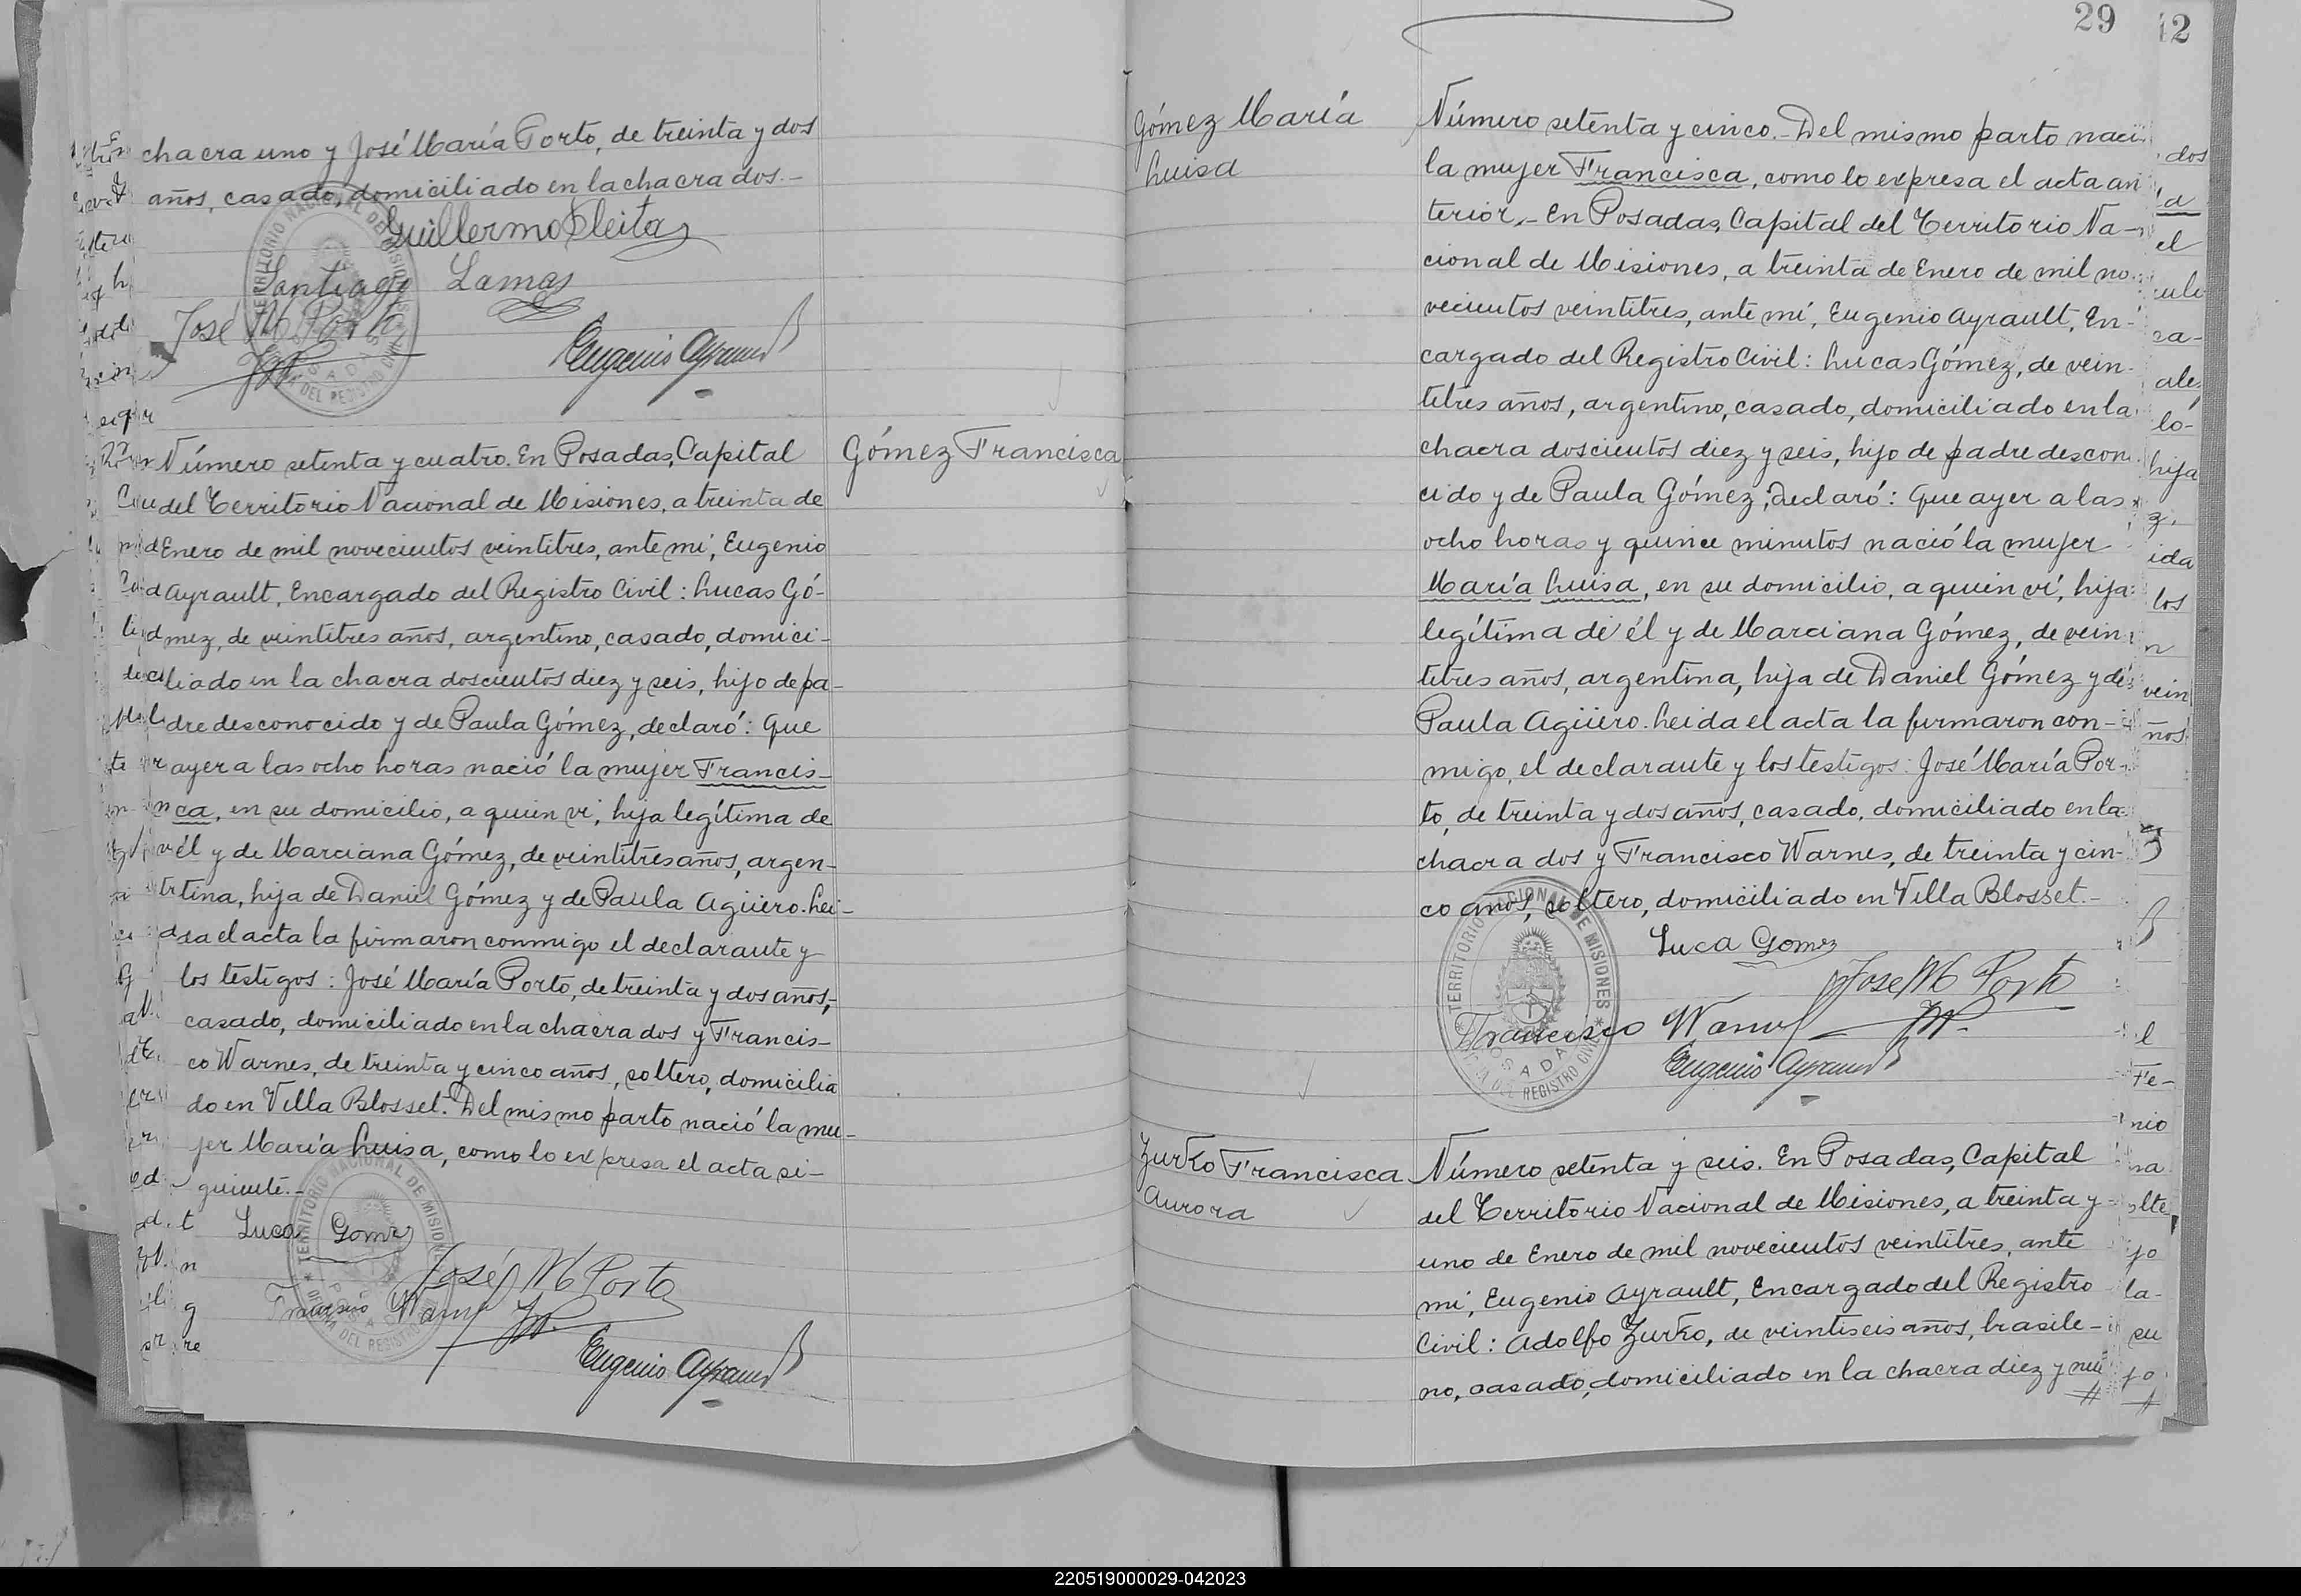 chacra uno y José María Porto, de treinta y dos
años, casado, domiciliado en la chacra dos.-
Guillermo Fleitas
Santiago Lamas
José M Porto
Eugenio Ayrault
Gómez Francisca
Número setenta y cuatro. En Posadas, Capital
del Territorio Nacional de Misiones, a treinta de
Enero de mil novecientos veintitres, ante mí, Eugenio
Ayrault, Encargado del Registro Civil: Lucas Gó-
mez, de veintitres años, argentino, casado, domici-
liado en la chacra doscientos diez y seis, hijo de pa-
dre desconocido y de Paula Gómez, declaró: Que
ayer a las ocho horas nació la mujer Francis-
ca, en su domicilio, a quien ví, hija legítima de
él y de Marciana Gómez, de veintitres años, argen-
tina, hija de Daniel Gómez y de Paula Agüero. Lei-
da el acta la firmaron conmigo el declarante y
los testigos: José María Porto, de treinta y dos años,
casado, domiciliado en la chacra dos y Francis-
co Warnes, de treinta y cinco años, soltero, domicilia
do en Villa Blosset. Del mismo parto nació la mu-
jer María Luisa, como lo expresa el acta si-
guiente.-
Luca Gomez
José M Porto
Francisco Warnes
Eugenio Ayrault
29
12
Gómez María
Luisa
Número setenta y cinco.- Del mismo parto naci
la mujer Francisca, como lo expresa el acta an
terior.- En Posadas, Capital del Territorio Na-
cional de Misiones, a treinta de Enero de mil no
vecientos veintitres, ante mí, Eugenio Ayrault, En-
cargado del Registro Civil: Lucas Gómez, de vein-
titres años, argentino, casado, domiciliado en la
chacra doscientos diez y seis, hijo de padre descono
cido y de Paula Gómez, declaró: Que ayer a las
ocho horas y quince minutos nació la mujer
María Luisa, en su domicilio, a quien ví, hija
legítima de él y de Marciana Gómez, de vein
titres años, argentina, hija de Daniel Gómez y de
Paula Agüero. Leida el acta la firmaron con-
migo, el declarante y los testigos: José María Por-
to, de treinta y dos años, casado, domiciliado en la
chacra dos y Francisco Warnes, de treinta y cin-
co años, soltero, domiciliado en Villa Blosset.-
TERRITORIO NACIONAL DE MISIONES
POSADAS
OFICINA DEL REGISTRO CIVIL
Luca Gomez
José M Porto
Francisco Warnes
Eugenio Ayrault
Zurko Francisca
Aurora
Número setenta y seis. En Posadas, Capital
del Territorio Nacional de Misiones, a treinta y
uno de Enero de mil novecientos veintitres, ante
mí, Eugenio Ayrault, Encargado del Registro
Civil: Adolfo Zurko, de veintiseis años, brasile-
no, casado, domiciliado en la chacra diez y nue
220519000029-042023